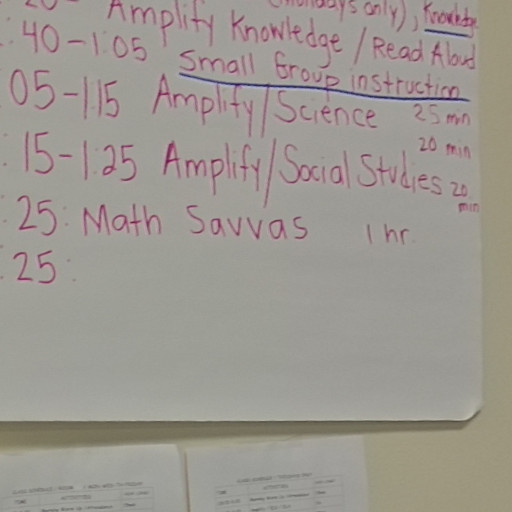 Amplify (Mondays only), Knowledge
:40-1:05 Knowledge / Read Aloud
Small Group instruction
05-1:15 Amplify/Science 25 min
:15-1:25 Amplify/Social Studies 20 min
20 min
:25: Math Savvas 1 hr.
:25: